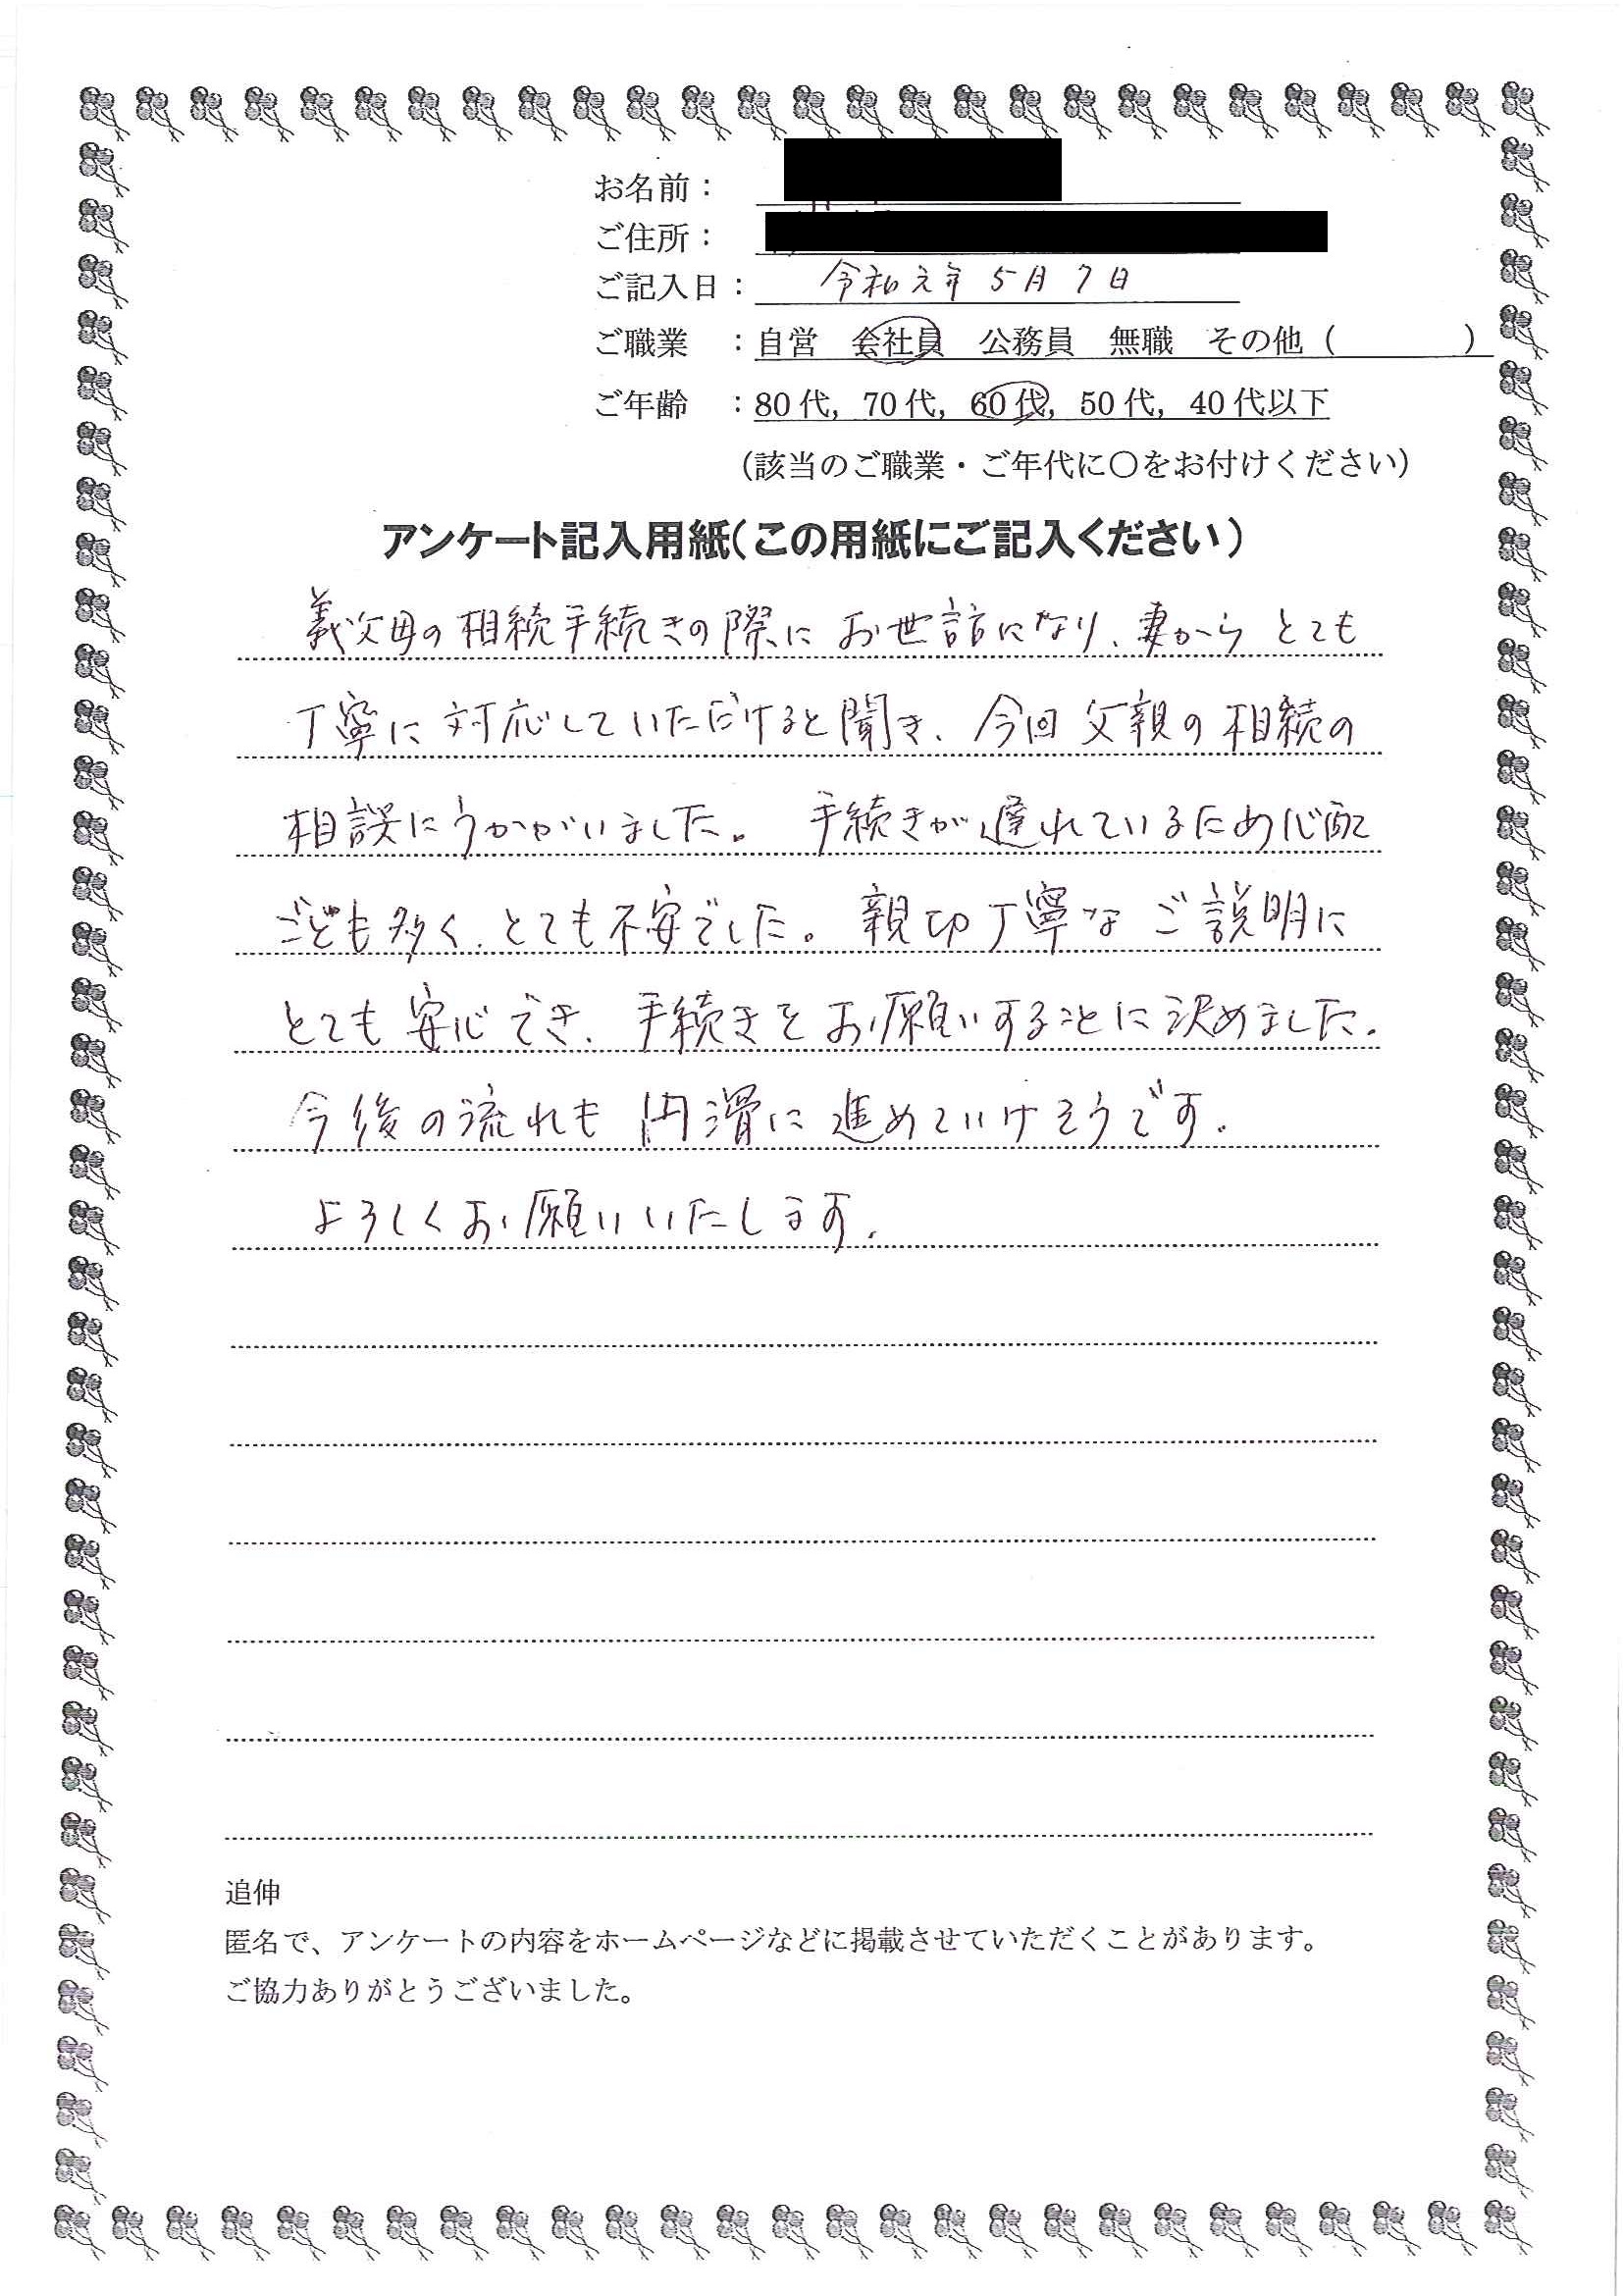 お名前：
ご住所：
ご記入日： 令和元年 5月7日
ご職業 ：自営 会社員 公務員 無職 その他（ ）
ご年齢 ：80代，70代，60代，50代，40代以下
（該当のご職業・ご年代に〇をお付けください）
アンケート記入用紙（この用紙にご記入ください）
義父母の相続手続きの際にお世話になり、妻からとても
丁寧に対応していただけると聞き、今回父親の相続の
相談にうかがいました。 手続きが遅れているため心配
ごども多く、とても不安でした。親切丁寧なご説明に
とても安心でき、手続きをお願いすることに決めました。
今後の流れも円滑に進めていけそうです。
よろしくお願いいたします。
追伸
匿名で、アンケートの内容をホームページなどに掲載させていただくことがあります。
ご協力ありがとうございました。